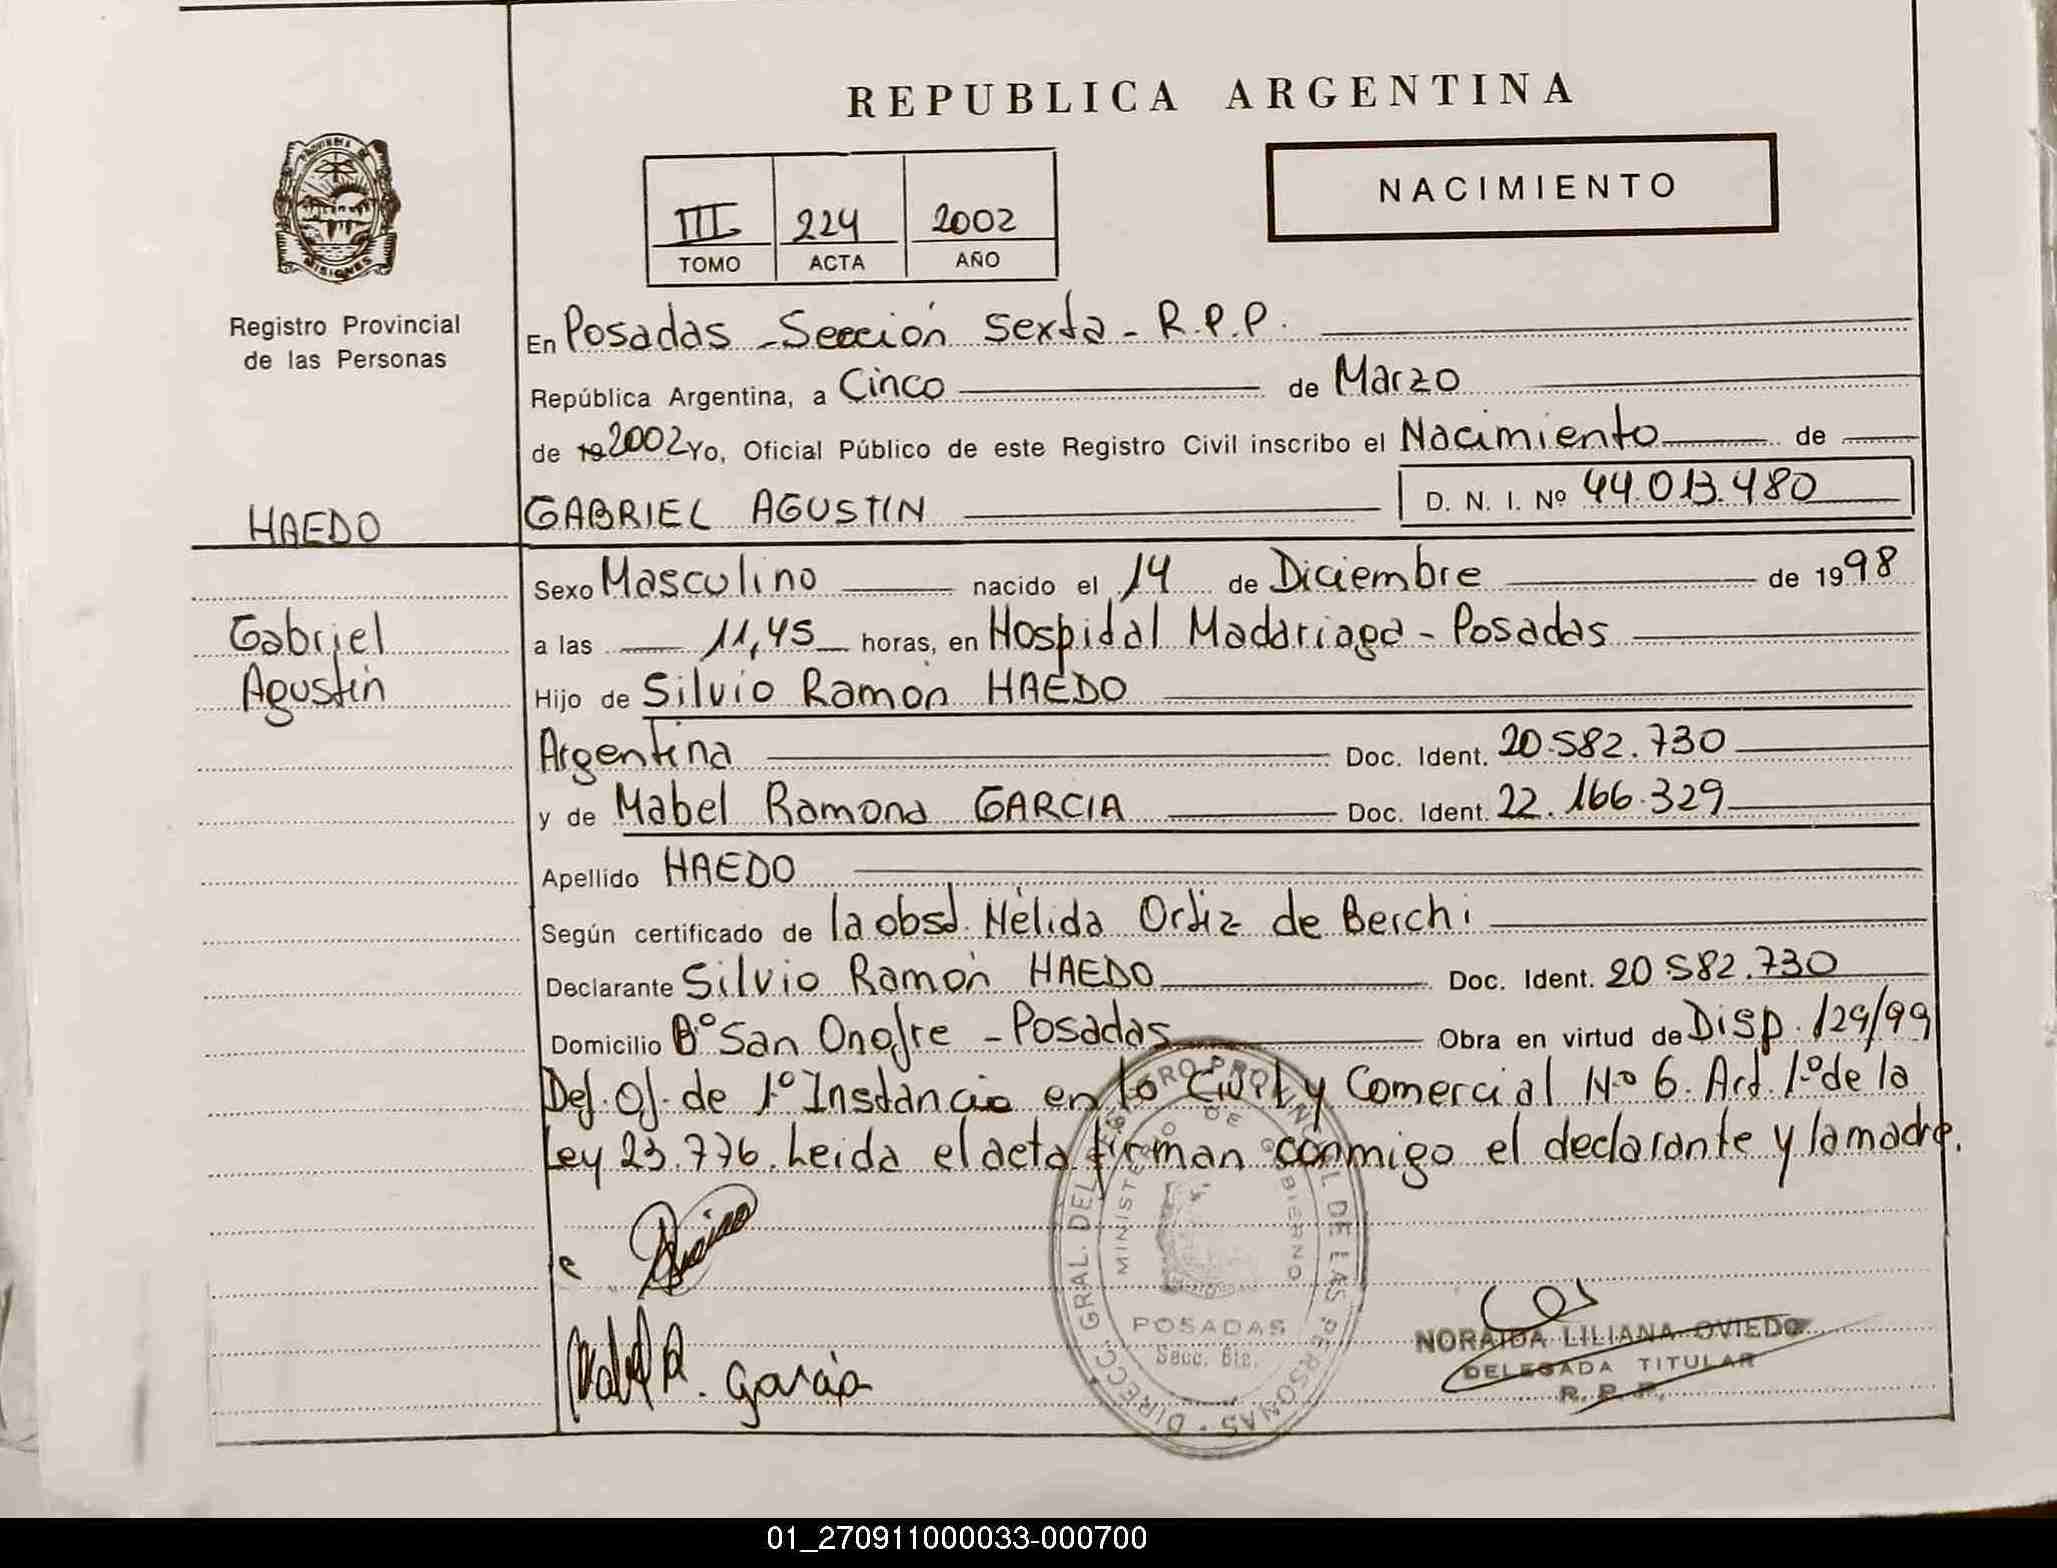 REPUBLICA ARGENTINA
NACIMIENTO
III 224 2002
TOMO ACTA AÑO
PROVINCIA DE
MISIONES
Registro Provincial
de las Personas
En Posadas - Sección Sexta - R.P.P.
República Argentina, a Cinco de Marzo
de 19 2002 Yo, Oficial Público de este Registro Civil inscribo el Nacimiento de
HAEDO
GABRIEL AGUSTIN D. N. I. Nº 44.013.480
Sexo Masculino nacido el 14 de Diciembre de 1998
Gabriel
Agustin
a las 11,45 horas, en Hospital Madariaga - Posadas
Hijo de Silvio Ramón HAEDO
Argentina Doc. Ident. 20.582.730
y de Mabel Ramona GARCIA Doc. Ident. 22.166.329
Apellido HAEDO
Según certificado de la obst. Nélida Ortiz de Berchi
Declarante Silvio Ramón HAEDO Doc. Ident. 20.582.730
Domicilio Bº San Onofre - Posadas Obra en virtud de Disp. 129/99
Def. Of. de 1º Instancia en lo Civil y Comercial Nº 6. Art. 1º de la
Ley 23.776. Leida el acta firman conmigo el declarante y la madre.
Mabel R. Garcia
DIRECC. GRAL. DEL REGISTRO PROVINCIAL DE LAS PERSONAS
MINISTERIO DE GOBIERNO
POSADAS
Secc. 6ta.
NORAIDA LILIANA OVIEDO
DELEGADA TITULAR
R. P. P.
01_270911000033-000700